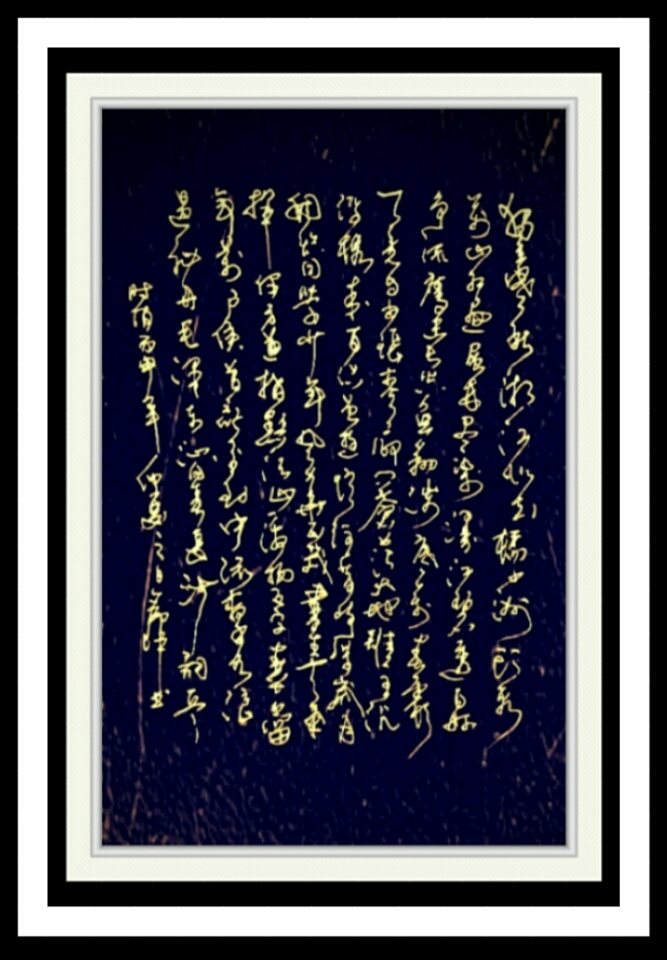 独立寒秋湘江北去橘子洲头看
萬山红遍层林尽染漫江碧透百舸
争流鹰击长空鱼翔浅底萬类霜
天竞自由怅寥廓问苍茫大地谁主沉
浮携来百侣曾游忆往昔峥嵘岁月
稠恰同学少年风华正茂书生意气
挥斥方遒指點江山激扬文字粪土當
年萬户侯曾记否到中流击水浪
遏飞舟毛泽东沁园春长沙词一首
时值丙申年仲夏之日 书